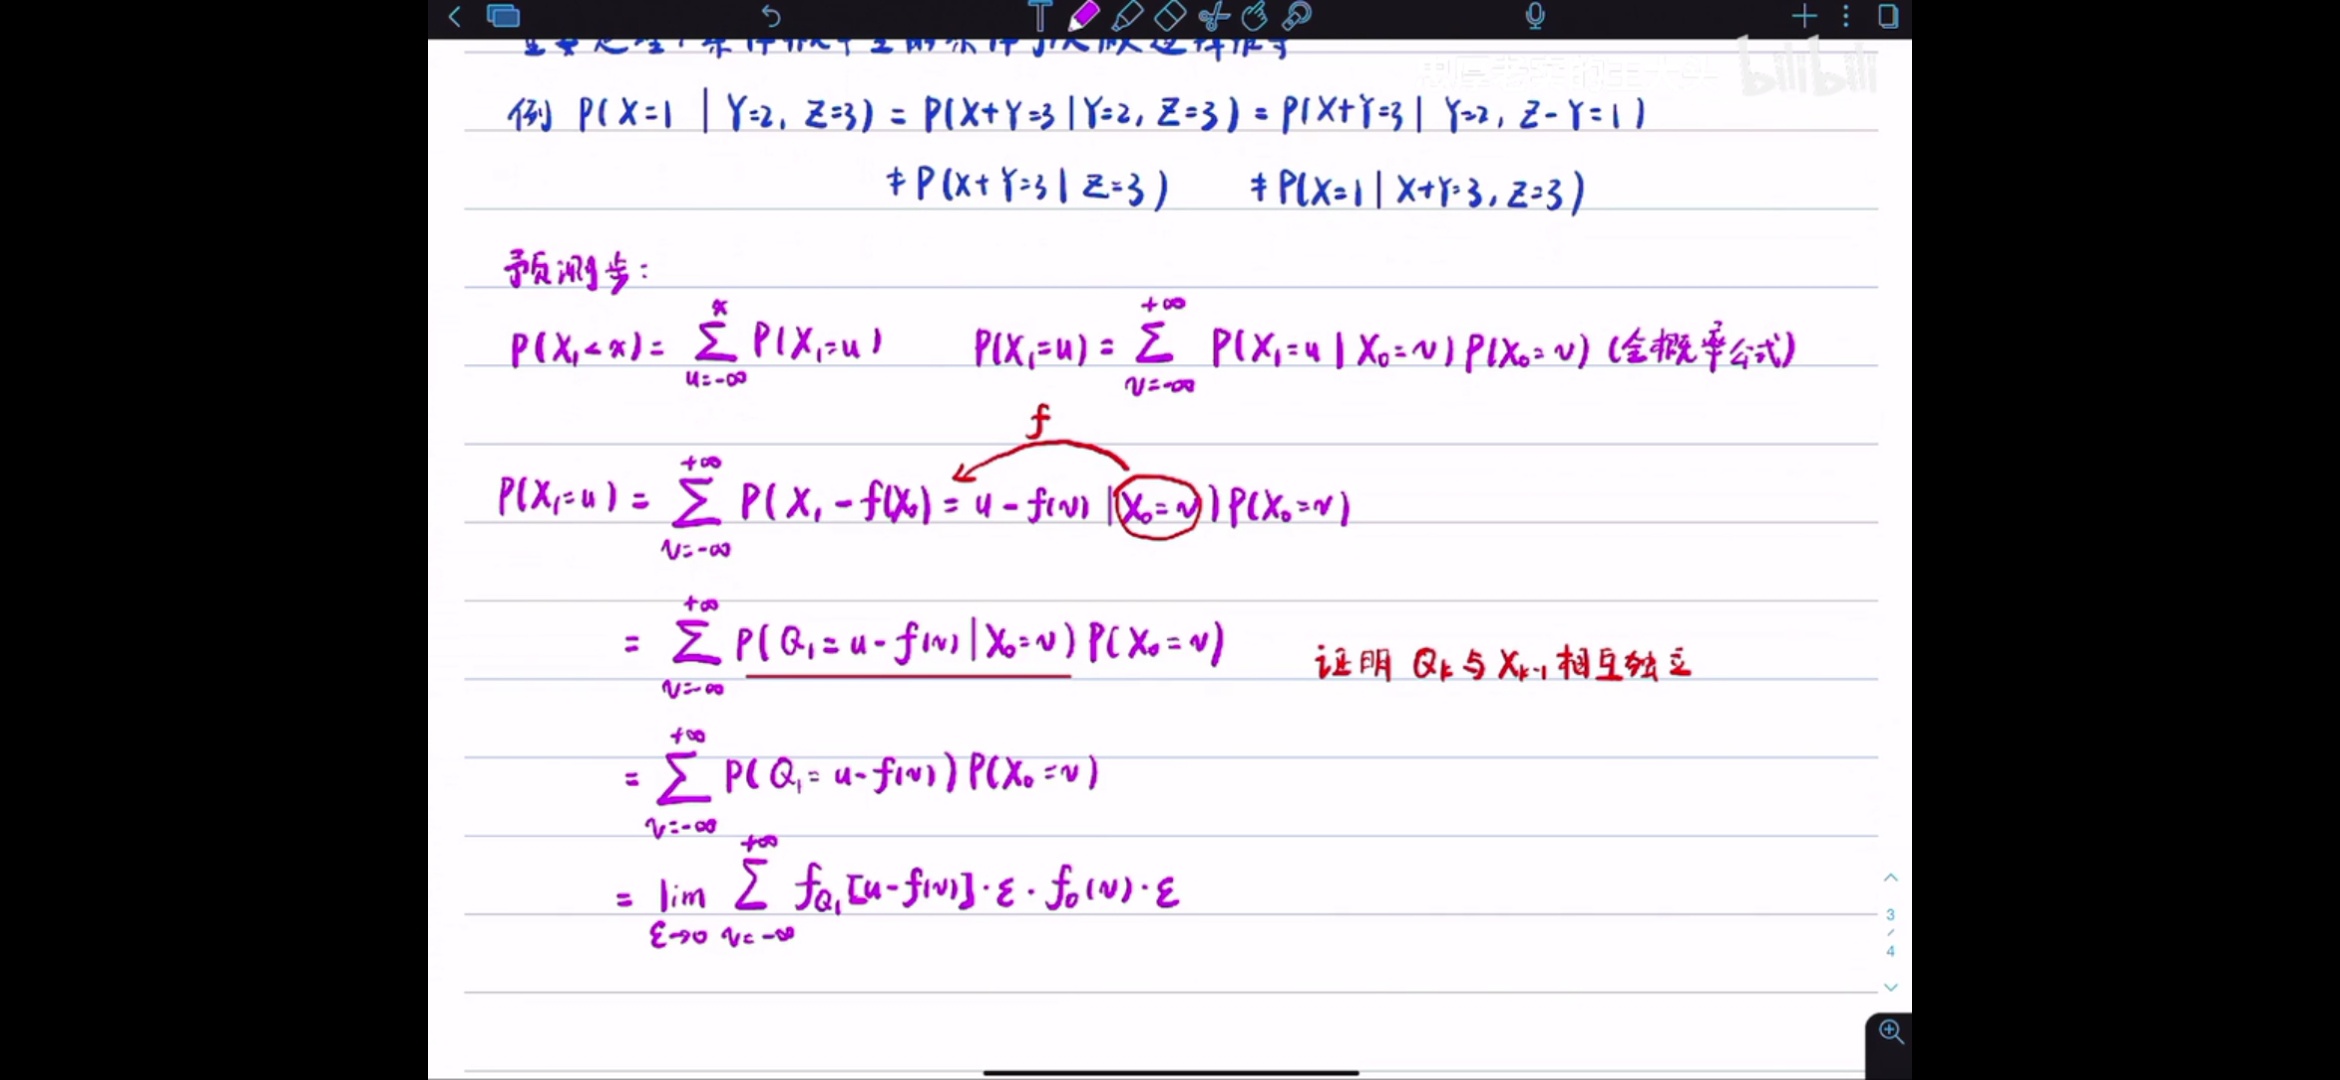 例 P(X=1 | Y=2, Z=3) = P(X+Y=3 | Y=2, Z=3) = P(X+Y=3 | Y=2, Z-Y=1)
≠ P(X+Y=3 | Z=3) ≠ P(X=1 | X+Y=3, Z=3)
bilibili
预测步:
P(X₁<x) = ∑_{u=-∞}^{x} P(X₁=u) P(X₁=u) = ∑_{v=-∞}^{+∞} P(X₁=u | X₀=v) P(X₀=v) (全概率公式)
f
P(X₁=u) = ∑_{v=-∞}^{+∞} P(X₁-f(X₀) = u-f(v) | X₀=v) P(X₀=v)
= ∑_{v=-∞}^{+∞} P(Q₁=u-f(v) | X₀=v) P(X₀=v) 证明 Qₖ与Xₖ₋₁相互独立
= ∑_{v=-∞}^{+∞} P(Q₁=u-f(v)) P(X₀=v)
= lim_{ε→0} ∑_{v=-∞}^{+∞} f_{Q₁}[u-f(v)]·ε·f₀(v)·ε
3
/
4